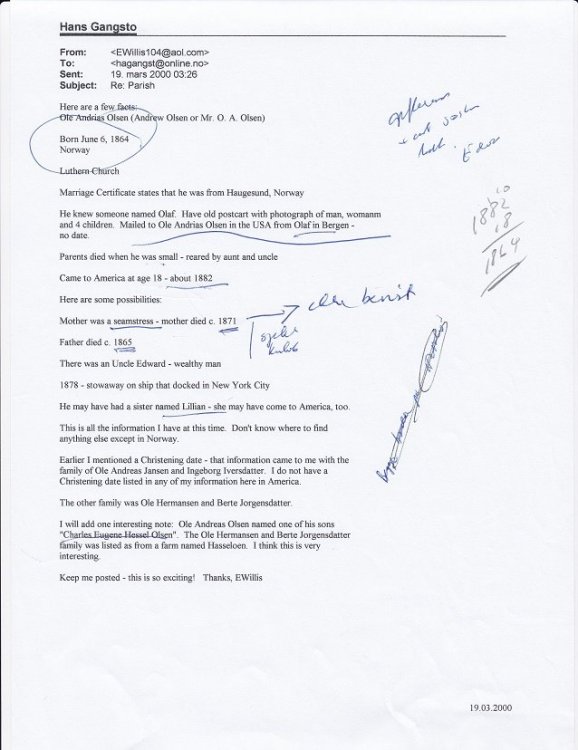 Hans Gangsto
From: <EWillis104@aol.com>
To: <hagangst@online.no>
Sent: 19. mars 2000 03:26
Subject: Re: Parish
Here are a few facts:
Ole Andrias Olsen (Andrew Olsen or Mr. O. A. Olsen)
Born June 6, 1864
Norway
Luthern Church
Marriage Certificate states that he was from Haugesund, Norway
He knew someone named Olaf. Have old postcart with photograph of man, womanm
and 4 children. Mailed to Ole Andrias Olsen in the USA from Olaf in Bergen -
no date.
Parents died when he was small - reared by aunt and uncle
Came to America at age 18 - about 1882
Here are some possibilities:
Mother was a seamstress - mother died c. 1871
Father died c. 1865
There was an Uncle Edward - wealthy man
1878 - stowaway on ship that docked in New York City
He may have had a sister named Lillian - she may have come to America, too.
This is all the information I have at this time. Don't know where to find
anything else except in Norway.
Earlier I mentioned a Christening date - that information came to me with the
family of Ole Andreas Jansen and Ingeborg Iversdatter. I do not have a
Christening date listed in any of my information here in America.
The other family was Ole Hermansen and Berte Jorgensdatter.
I will add one interesting note: Ole Andreas Olsen named one of his sons
"Charles Eugene Hessel Olsen". The Ole Hermansen and Berte Jorgensdatter
family was listed as from a farm named Hasseloen. I think this is very
interesting.
Keep me posted - this is so exciting! Thanks, EWillis
10
1882
18
1864
19.03.2000